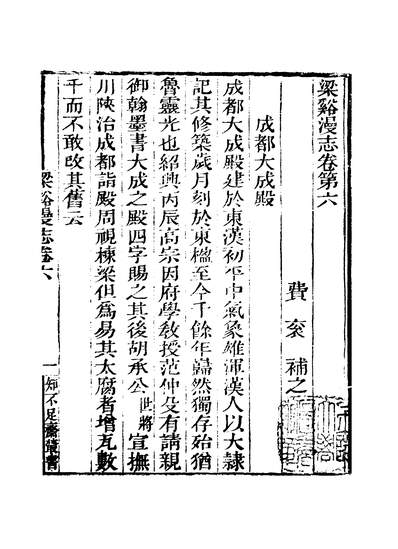 梁谿漫志卷第六
費袞補之
成都大成殿
成都大成殿建於東漢初平中氣象雄渾漢人以大隷
記其修築歲月刻於東楹至今千餘年巋然獨存殆猶
魯靈光也紹興丙辰高宗因府學敎授范仲殳有請親
御翰墨書大成之殿四字賜之其後胡承公世將宣撫
川陝治成都詣殿周視棟梁但爲易其太腐者增瓦數
千而不敢改其舊云
梁谿漫志卷六
一
知不足齋叢書